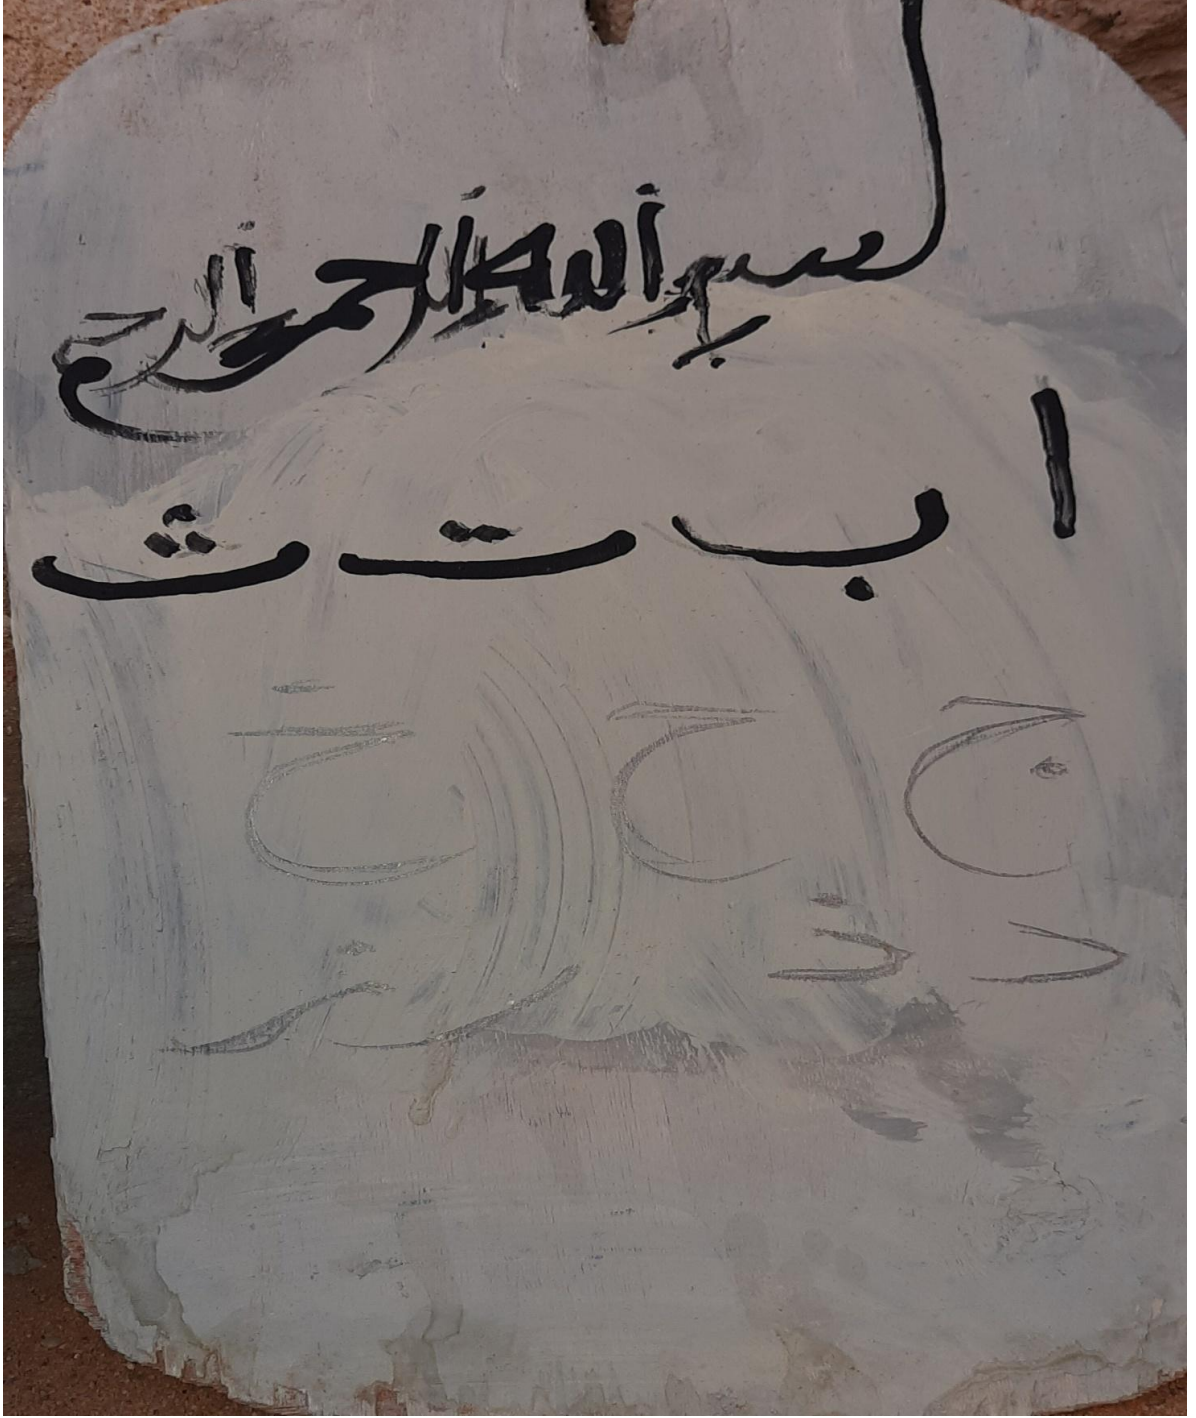 بسم الله الرحمن الرحيم
ا ب ت ث
ج ح خ
د ذ ر ز